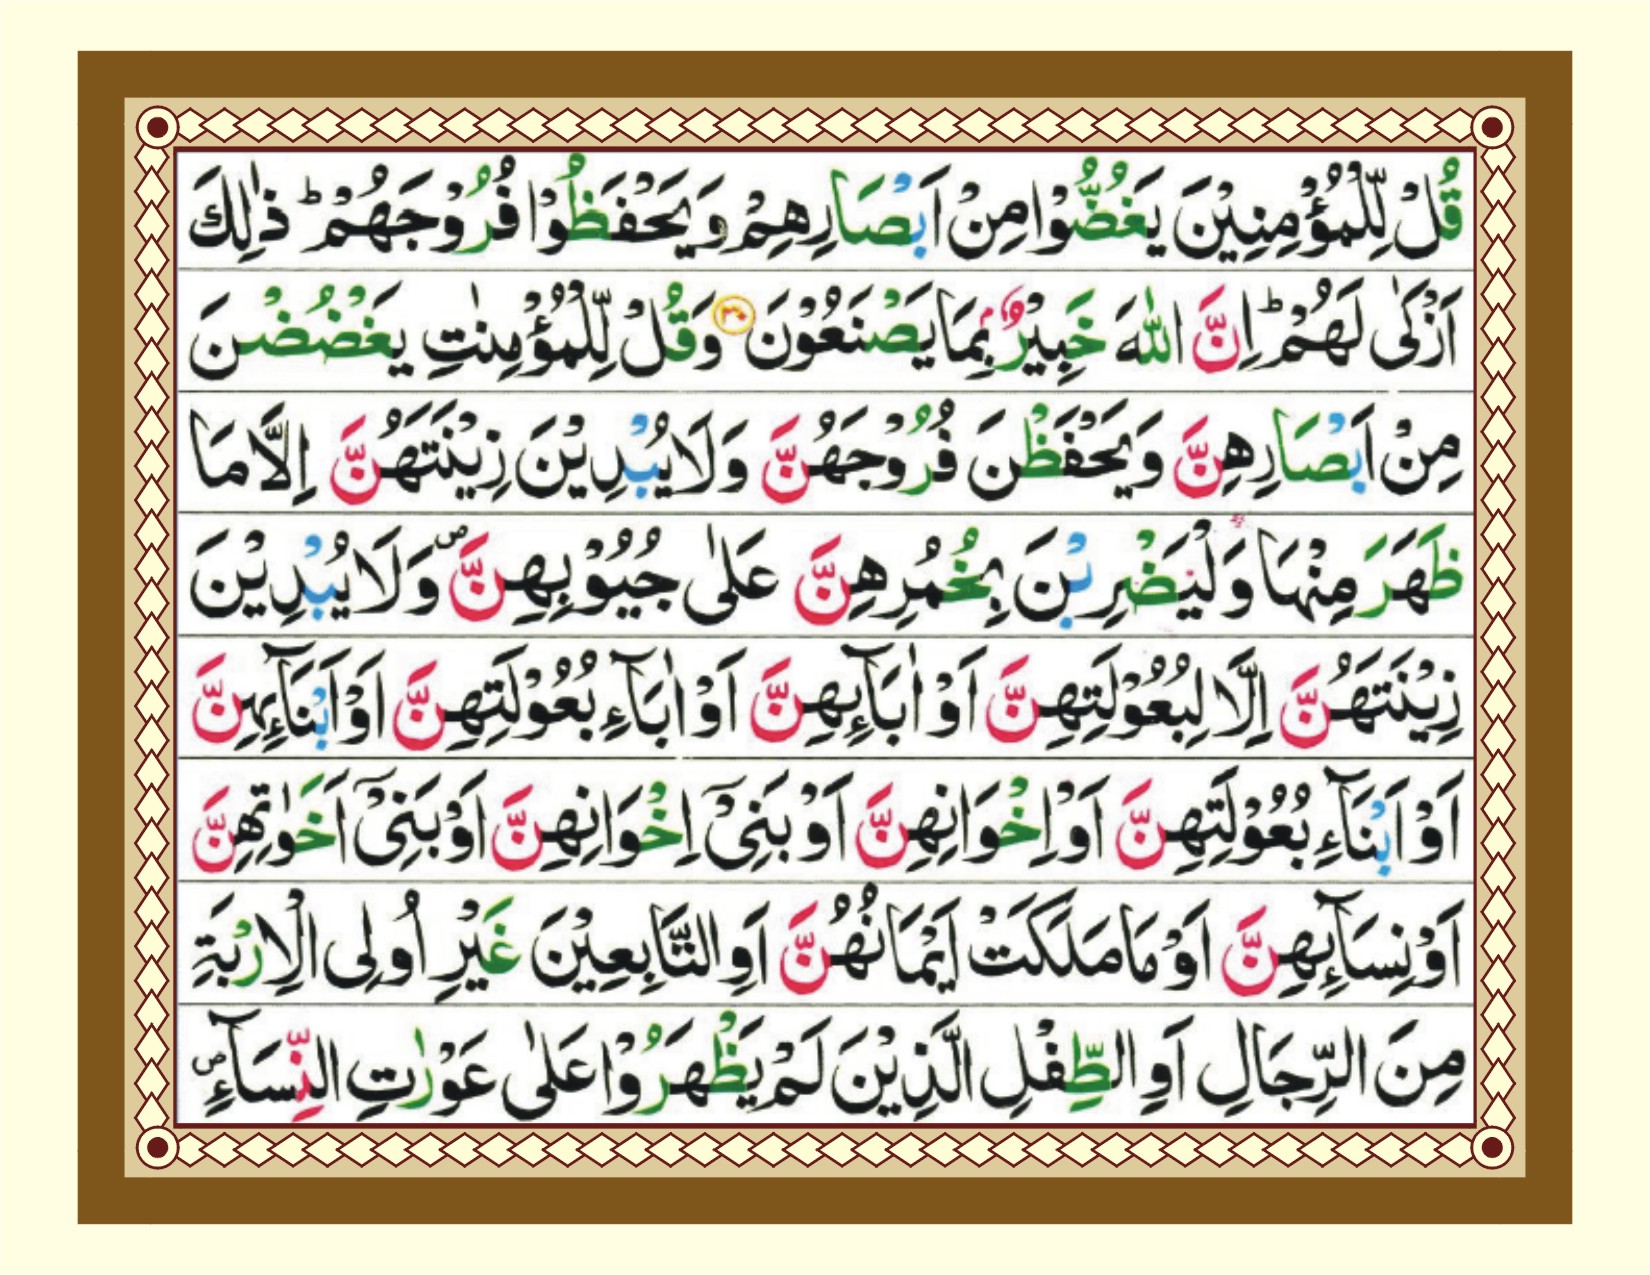 قُلْ لِّلْمُؤْمِنِيْنَ يَغُضُّوْا مِنْ اَبْصَارِهِمْ وَيَحْفَظُوْا فُرُوْجَهُمْ ؕ ذٰلِكَ
اَزْكٰى لَهُمْ ؕ اِنَّ اللّٰهَ خَبِيْرٌۢ بِمَا يَصْنَعُوْنَ ۳۰ وَقُلْ لِّلْمُؤْمِنٰتِ يَغْضُضْنَ
مِنْ اَبْصَارِهِنَّ وَيَحْفَظْنَ فُرُوْجَهُنَّ وَلَا يُبْدِيْنَ زِيْنَتَهُنَّ اِلَّا مَا
ظَهَرَ مِنْهَا وَلْيَضْرِبْنَ بِخُمُرِهِنَّ عَلٰى جُيُوْبِهِنَّ ۪ وَلَا يُبْدِيْنَ
زِيْنَتَهُنَّ اِلَّا لِبُعُوْلَتِهِنَّ اَوْ اٰبَآئِهِنَّ اَوْ اٰبَآءِ بُعُوْلَتِهِنَّ اَوْ اَبْنَآئِهِنَّ
اَوْ اَبْنَآءِ بُعُوْلَتِهِنَّ اَوْ اِخْوَانِهِنَّ اَوْ بَنِىْۤ اِخْوَانِهِنَّ اَوْ بَنِىْۤ اَخَوٰتِهِنَّ
اَوْ نِسَآئِهِنَّ اَوْ مَا مَلَكَتْ اَيْمَانُهُنَّ اَوِ التَّابِعِيْنَ غَيْرِ اُولِى الْاِرْبَةِ
مِنَ الرِّجَالِ اَوِ الطِّفْلِ الَّذِيْنَ لَمْ يَظْهَرُوْا عَلٰى عَوْرٰتِ النِّسَآءِ ۪